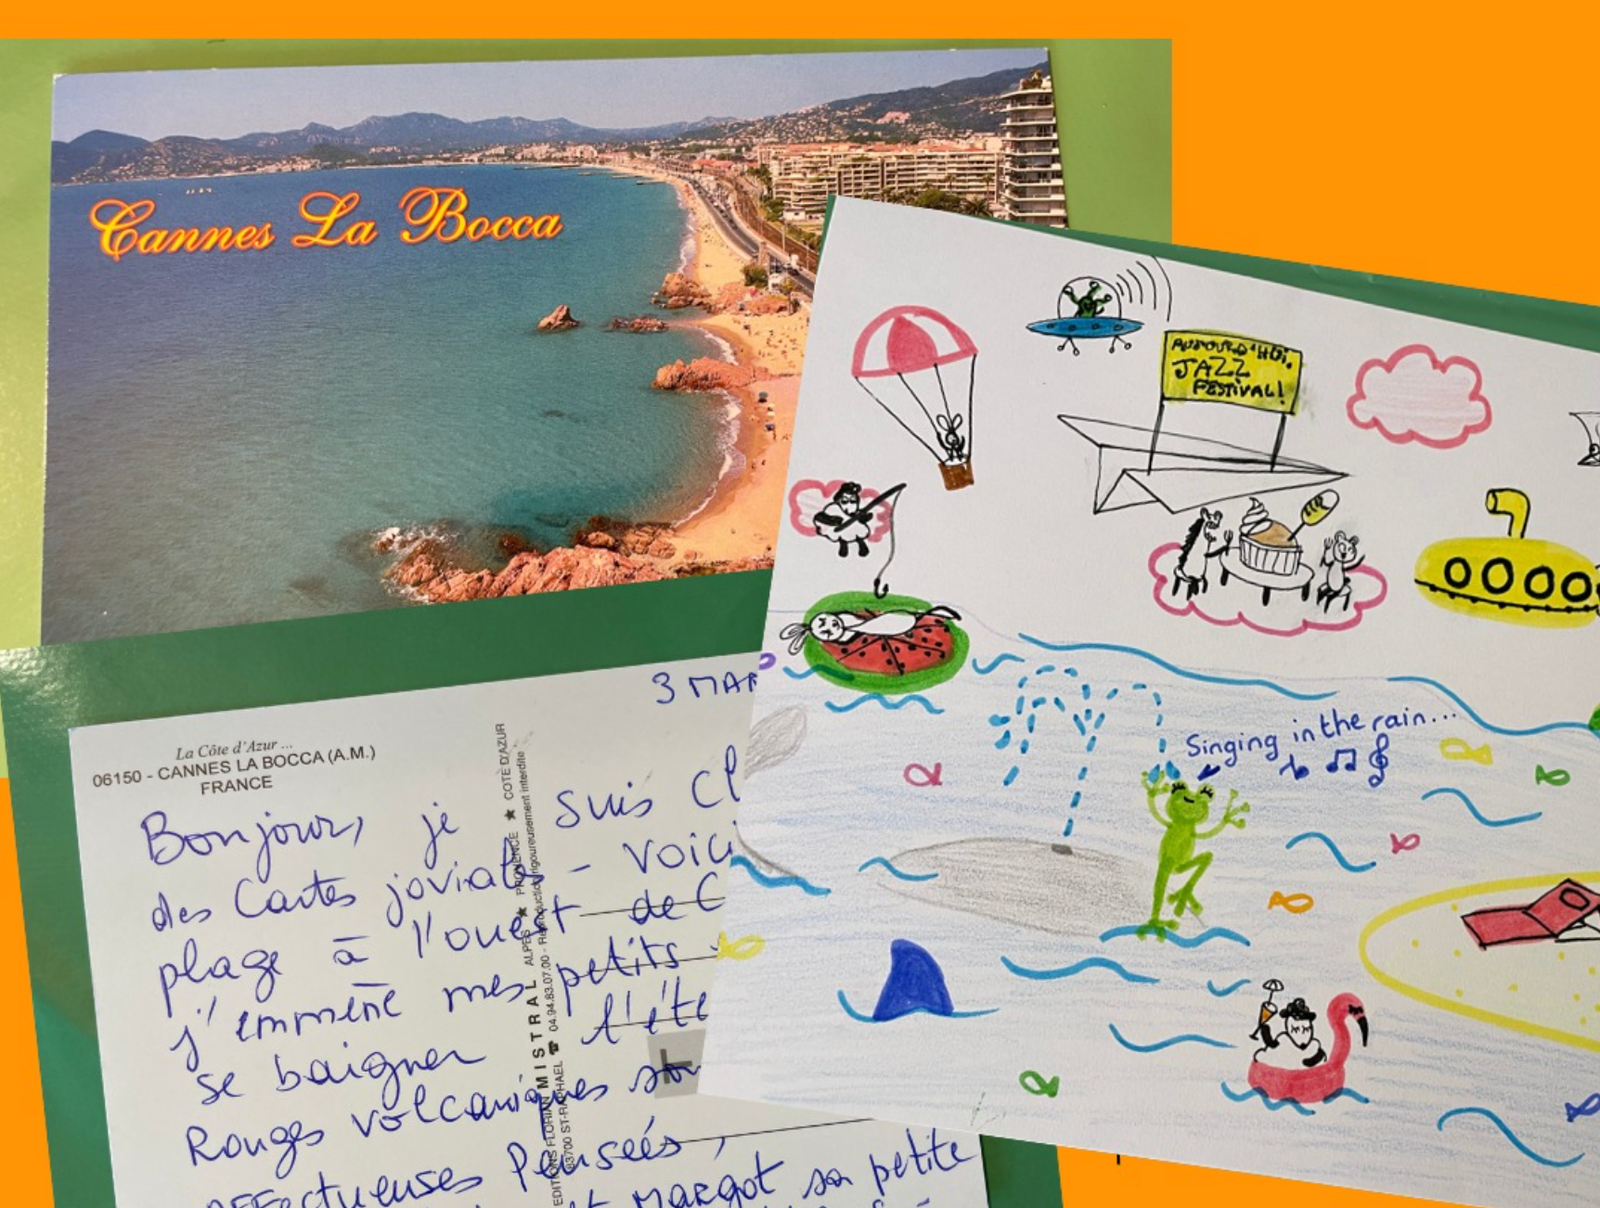 Cannes La Bocca
AUJOURD'HUI,
JAZZ
FESTIVAL!
Singing in the rain...
La Côte d'Azur ...
06150 - CANNES LA BOCCA (A.M.)
FRANCE
3 MAR
Bonjour, je suis Cl
des Cartes joviales - voici
plage à l'ouest de C
j'emmène mes petits
se baigner l'été
Rouges volcaniques
affectueuses Pensées,
et MARGOT sa petite
EDITIONS FLORIAN MISTRAL ALPES ★ PROVENCE ★ COTE D'AZUR
83700 ST-RAPHAEL ☎ 04.94.83.07.00 - Reproduction rigoureusement interdite